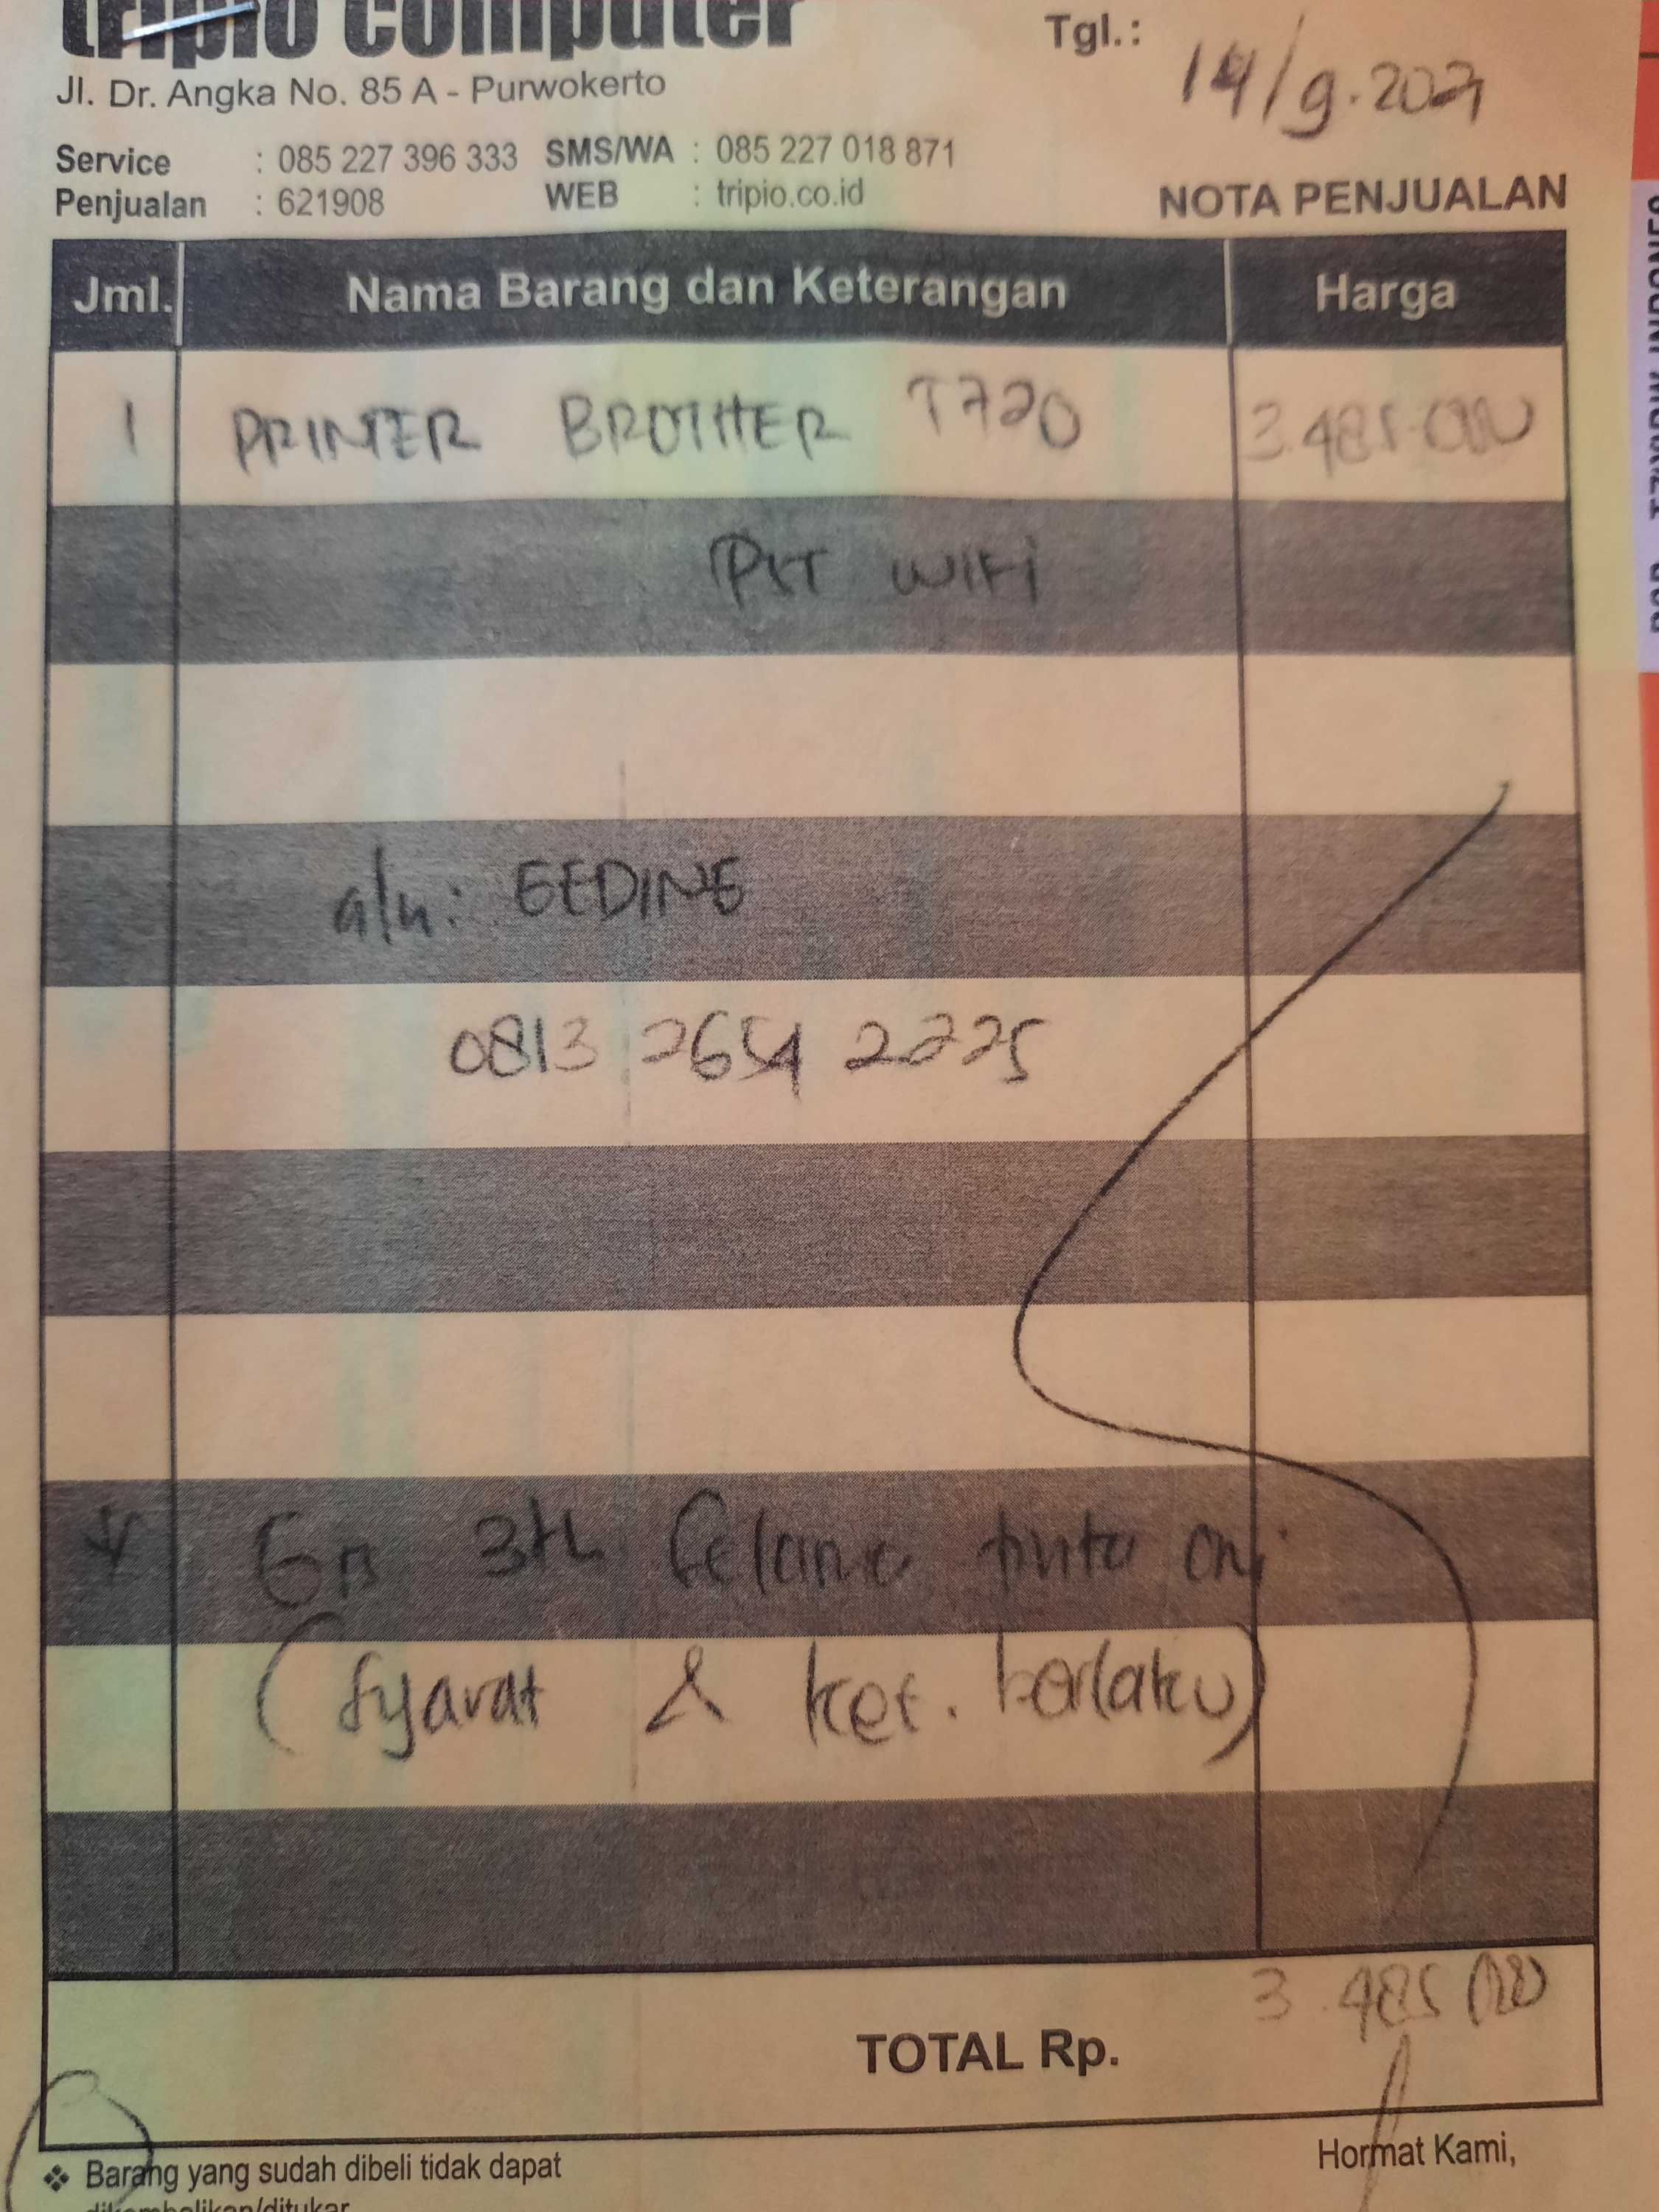 tripio computer
Tgl.: 14/9.2021
Jl. Dr. Angka No. 85 A - Purwokerto
Service : 085 227 396 333 SMS/WA : 085 227 018 871
Penjualan : 621908 WEB : tripio.co.id
NOTA PENJUALAN
Jml. Nama Barang dan Keterangan Harga
1 PRINTER BROTHER T720 3.485.000
WIFI
a/n:
0813 2654 2225
3th tinta ori
(syarat & ket. berlaku)
3.485.000
TOTAL Rp.
❖ Barang yang sudah dibeli tidak dapat
dikembalikan/ditukar
Hormat Kami,